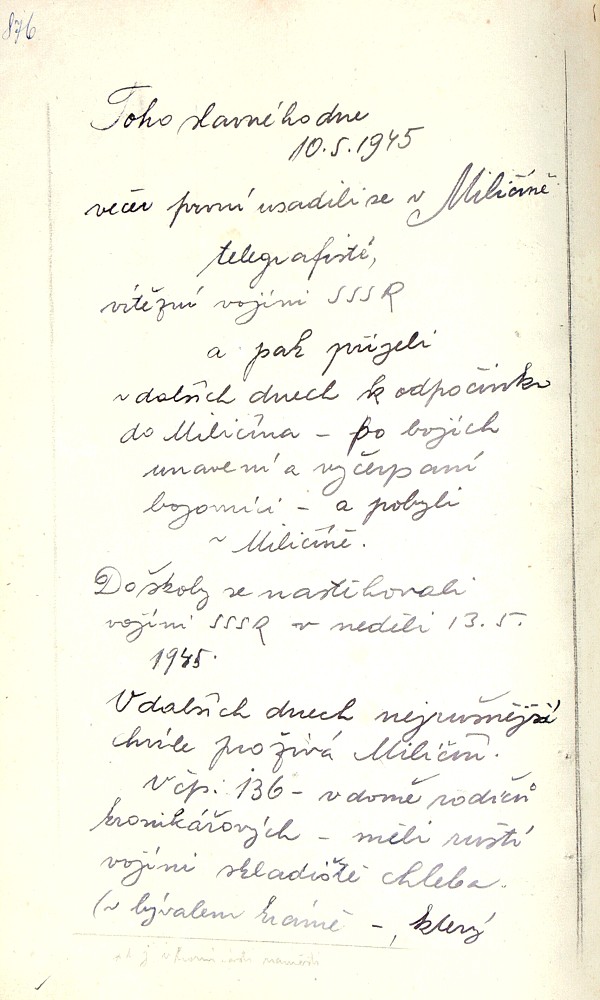 876
Toho slavného dne
10.5.1945
večer první usadili se v Miličíně
telegrafisté,
vítězní vojíni SSSR
a pak přijeli
v dalších dnech k odpočinku
do Miličína – po bojích
unavení a vyčerpaní
bojovníci – a pobyli
v Miličíně.
Do školy se nastěhovali
vojíni SSSR v neděli 13. 5.
1945.
V dalších dnech nejrušnější
chvíle prožívá Miličín.
V čp. 136 – v domě rodičů
kronikářových – měli ruští
vojíni skladiště chleba.
(v bývalem krámě –, který